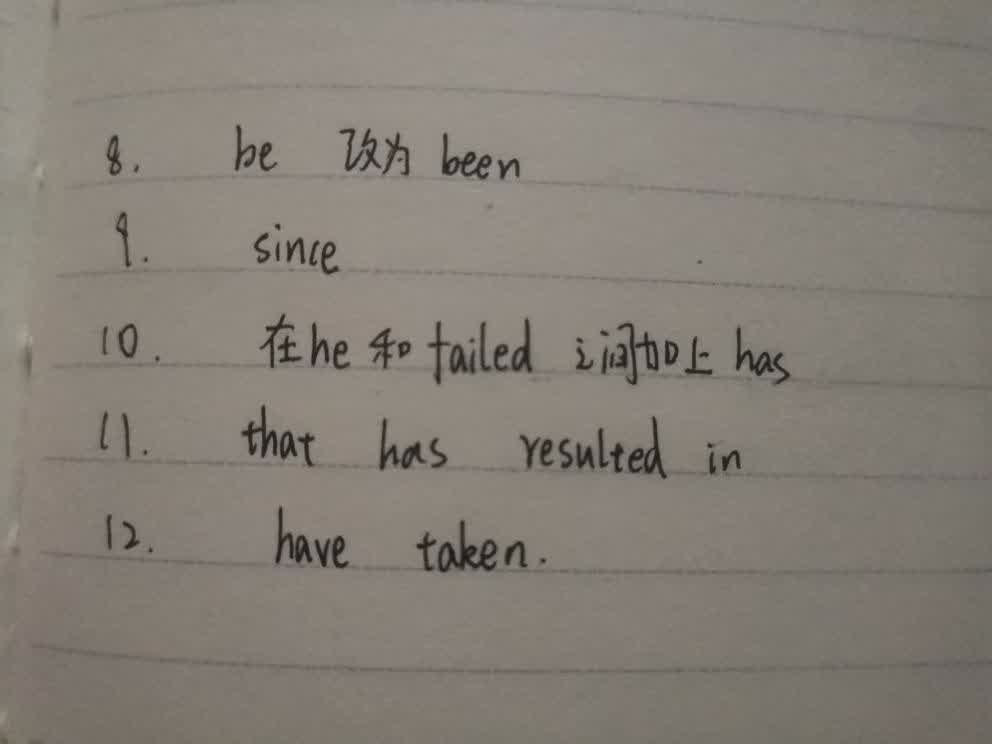 8. be 改为 been
9. since
10. 在he和failed之间加上has
11. that has resulted in
12. have taken.